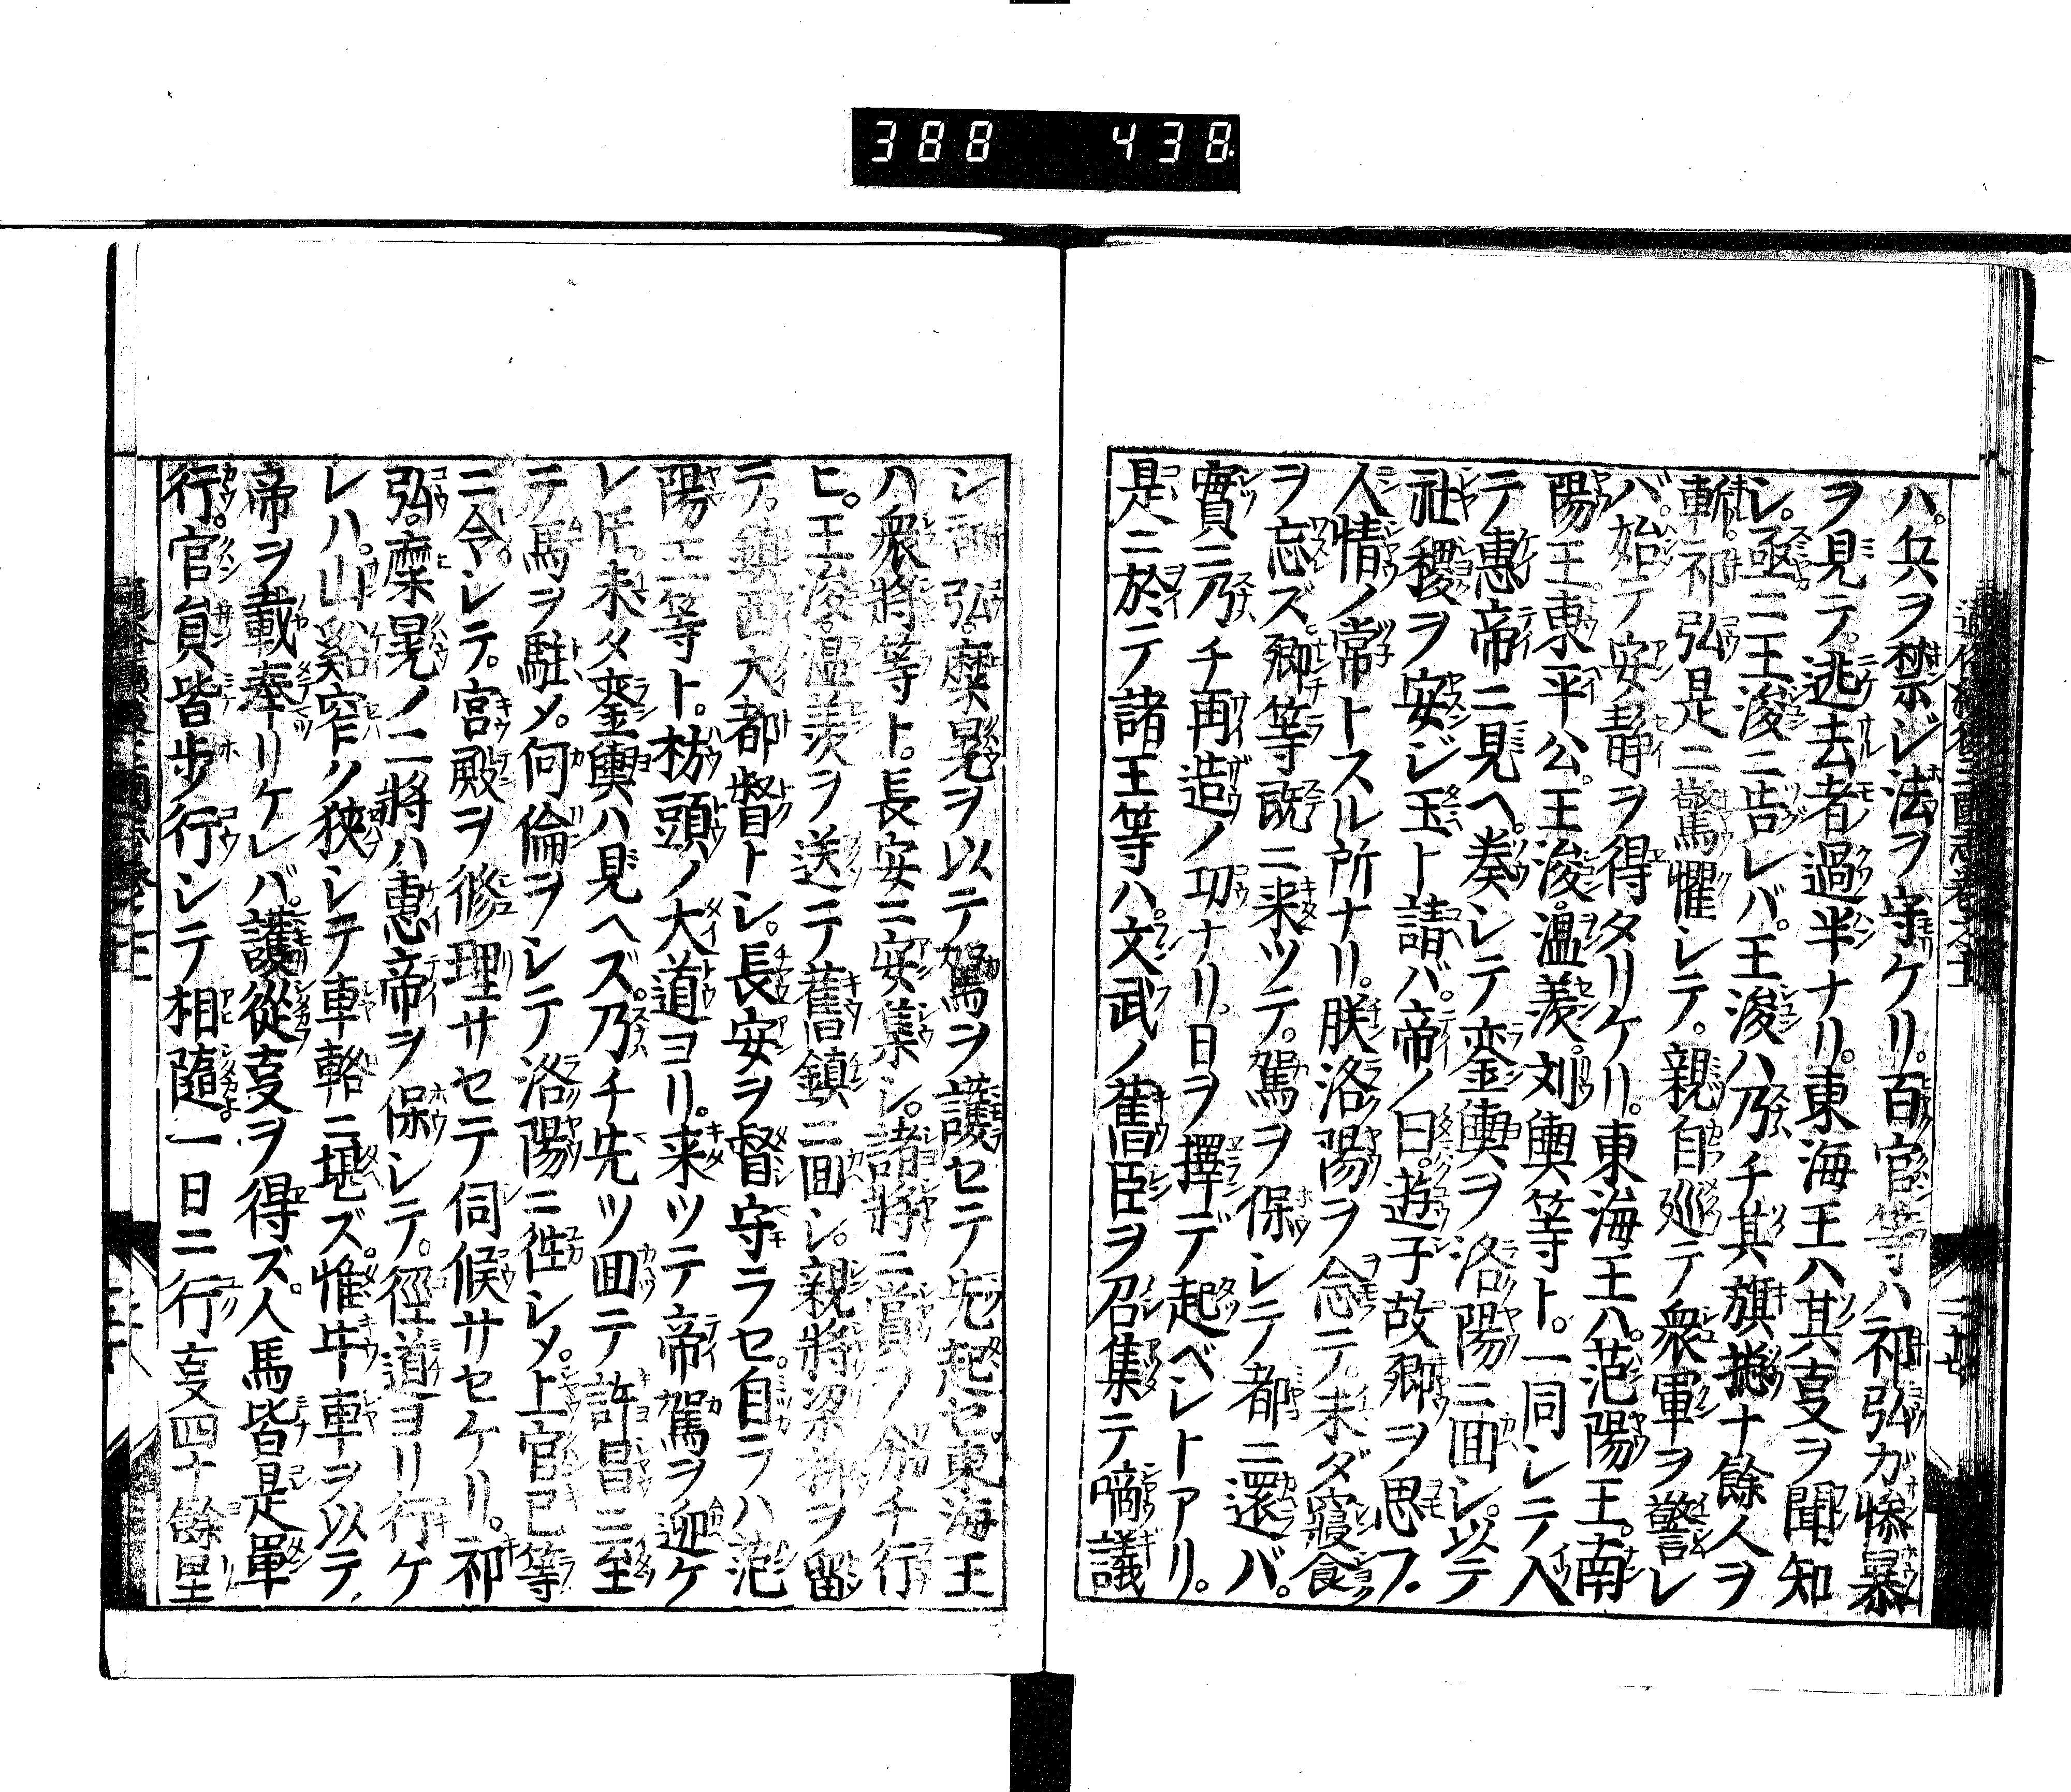 388 438
ハ。兵ヲ禁ジ法ヲ守ケリ。百官等ハ祁弘ガ惨暴
ヲ見テ。逃去者過半ナリ。東海王ハ其㕝ヲ聞知
シ。亟ニ王浚ニ告レバ。王浚ハ乃チ其旗揔十餘人ヲ
斬。祁弘是ニ驚懼レテ。親自廵テ衆軍ヲ警レ
バ。始テ安静ヲ得タリケリ。東海王ハ。范陽王。南
陽王。東平公。王浚。温羨。刘輿等ト。一同シテ入
テ惠帝ニ見ヘ。奏シテ鑾輿ヲ洛陽ニ囬シ。以テ
社稷ヲ安ジ玉ト請バ。帝ノ曰。遊子故郷ヲ思フ。
人情ノ常トスル所ナリ。朕洛陽ヲ念テ。未ダ寢食
ヲ忘ズ。卿等既ニ来ツテ。駕ヲ保シテ都ニ還バ。
實ニ乃チ再造ノ功ナリ。日ヲ擇デ起ベシトアリ。
是ニ於テ諸王等ハ。文武ノ舊臣ヲ召集テ啇議
シ祁弘。糜晃ヲ以テ駕ヲ護セテ先起セ。東海王
ハ衆將等ト。長安ニ安集シ。諸將ニ賞フ分チ行
ヒ。王浚。温羨ヲ送テ舊鎮ニ囬シ。親將梁柳ヲ留
テ。鎮西大都督トシ。長安ヲ督守ラセ。自ラハ范
陽王等ト。枋頭ノ大道ヨリ。来ツテ帝駕ヲ迎ケ
レ𪜈。未タ鑾輿ハ見ヘズ。乃チ先ツ囬テ許昌ニ至
テ馬ヲ駐メ。何倫ヲシテ洛陽ニ徃シメ。上官已等
ニ令シテ。宮殿ヲ修理サセテ伺候サセケリ。祁
弘。糜晃ノ二將ハ惠帝ヲ保シテ。徑道ヨリ行ケ
レハ。山谿窄ク狹シテ車輅ニ堪ズ。惟牛車ヲ以テ
帝ヲ載奉リケレバ。護從㕝ヲ得ズ。人馬皆是單
行。官員皆歩行シテ相隨。一日ニ行㕝四十餘里